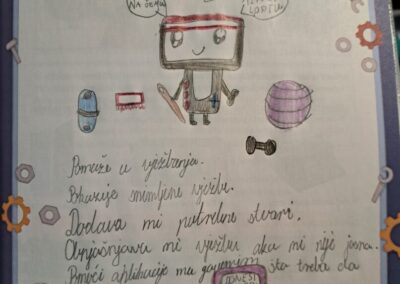 NA ČEMU
Pomaže u vježbanju.
Pokazuje snimljene vježbe.
Dodava mi potrebne stvari.
Objašnjava mi vježbu ako mi nije jasna.
Pomoći aplikacije na šta treba da
DONESI